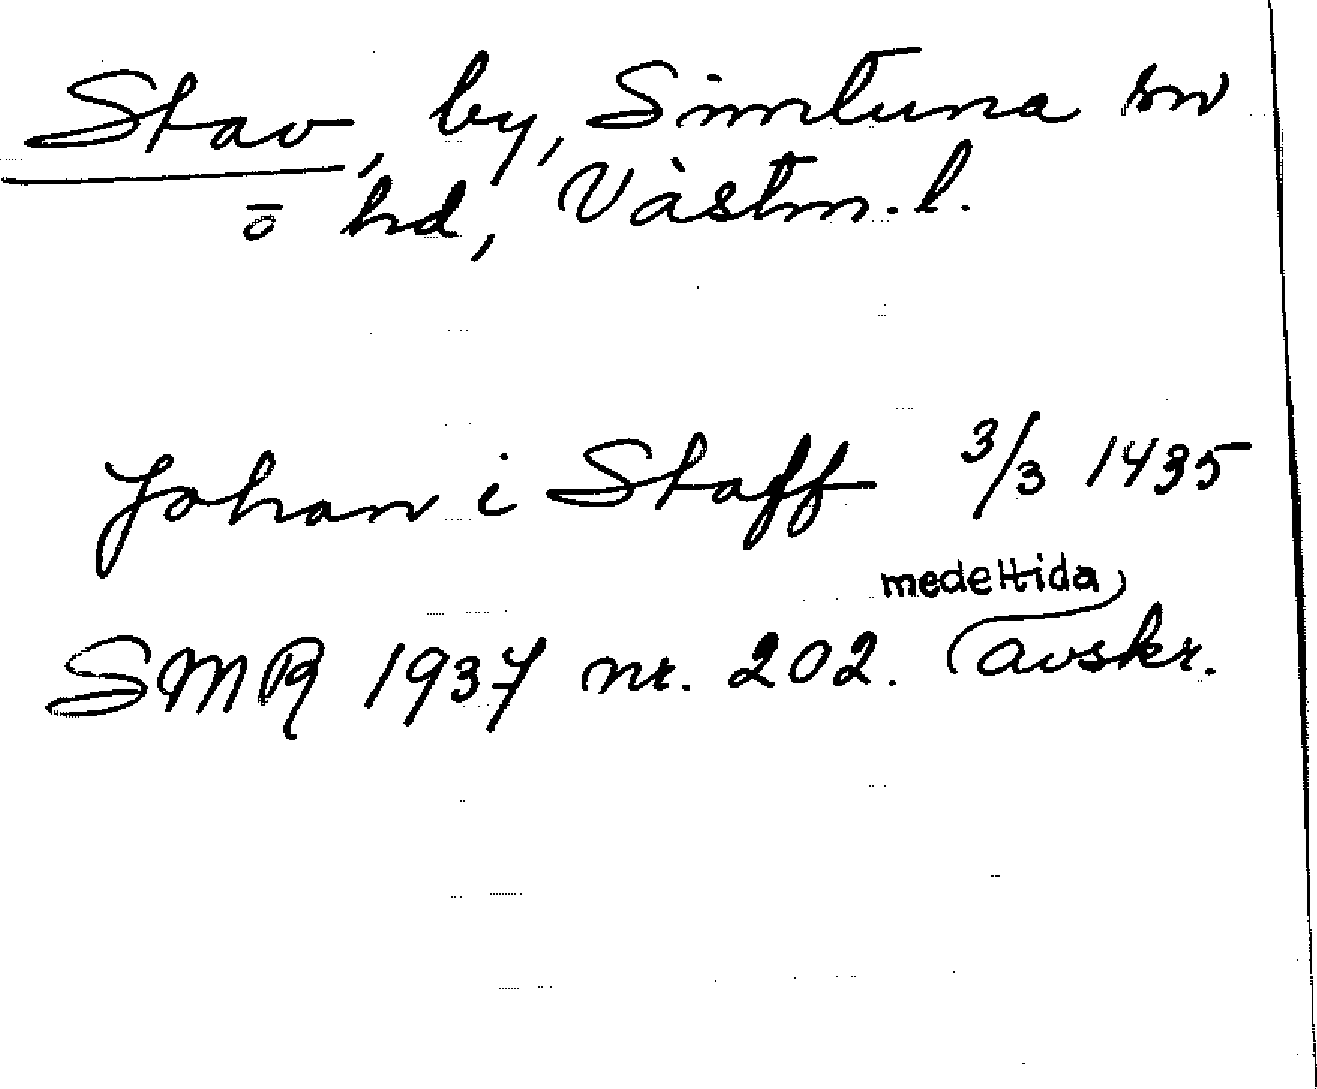 Stav, by, Simtuna sn
o hd, Västm. l.
Johan i Staff 3/3 1435
medeltida
SMR 1937 nr. 202. avskr.